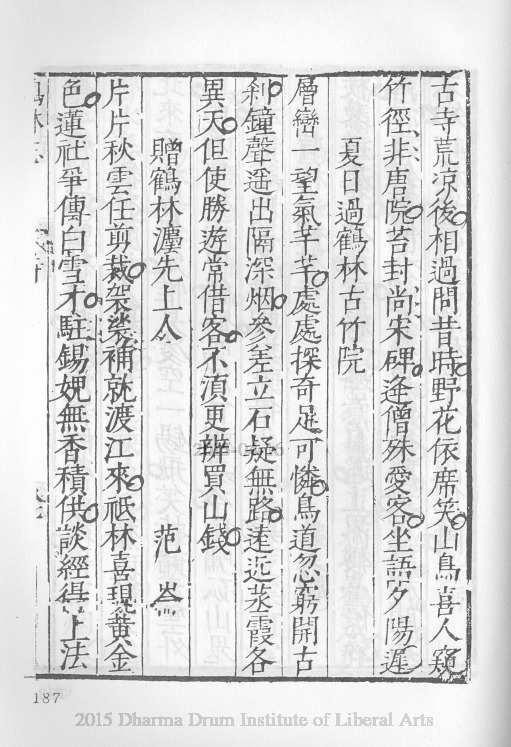 古寺荒凉後相過問昔時野花依席笑山鳥喜人窺
竹徑非唐院苔封尚宋碑逢僧殊愛客坐語夕陽遲
夏日過鶴林古竹院
層巒一望氣芊芊處處探奇足可憐鳥道忽窮開古
刹鐘聲遥出隔深烟參差立石疑無路遠近蒸霞各
異天但使勝遊常借客不湏更辦買山錢
贈鶴林濹先上人 范崙
片片秋雲任剪裁袈裟補就渡江來祗林喜現黄金
色蓮社爭傳白雪才駐錫媿無香積供談經得上法
187
2015 Dharma Drum Institute of Liberal Arts